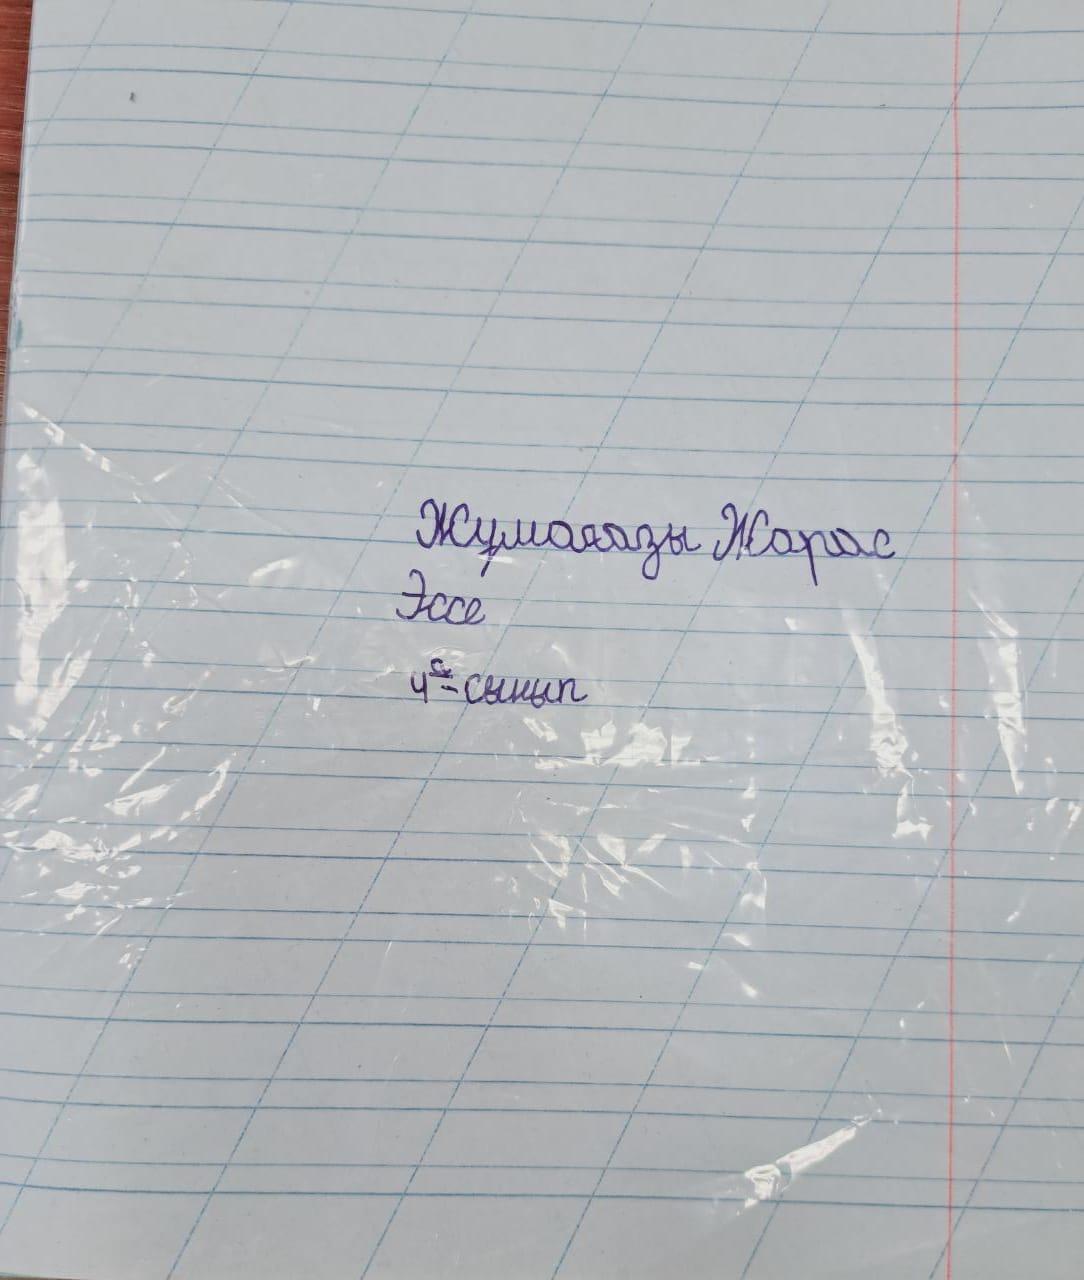 Жумағазы Жарас
Эссе
4 "г" - сынып